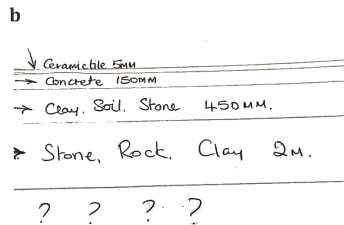 b
Ceramictile 5MM
Concrete 150MM
Clay. Soil. Stone 450MM.
Stone, Rock. Clay 2M.
? ? ? ?